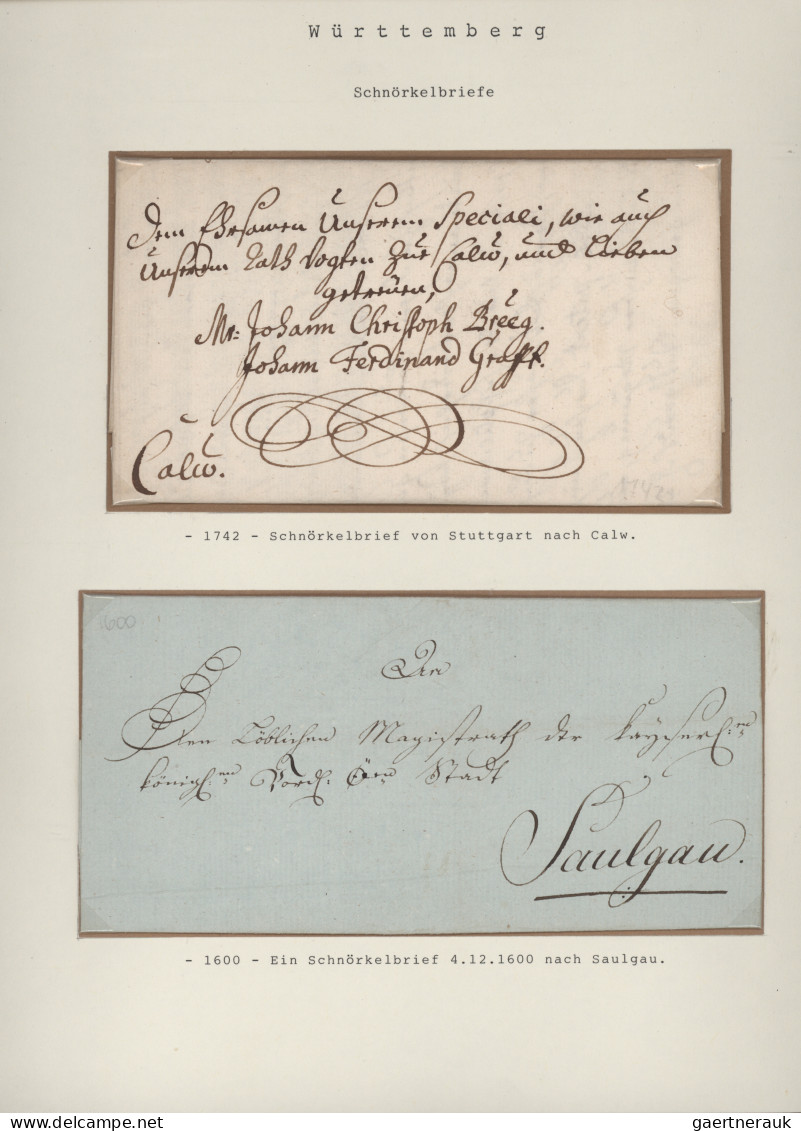 Württemberg
Schnörkelbriefe
Dem Ehrsamen Unserem Speciali, wie auch
Unserem Rath Vogten zue Calw, und Lieben
getreuen,
Mr: Johann Christoph Breeg.
Johann Ferdinand Graff.
Calw.
1742
- 1742 - Schnörkelbrief von Stuttgart nach Calw.
1600
An
Den Löblichen Magistrath der Kayserl:en
Königl:en Vord: Öen Stadt
Saulgau.
- 1600 - Ein Schnörkelbrief 4.12.1600 nach Saulgau.
gaertnerauk